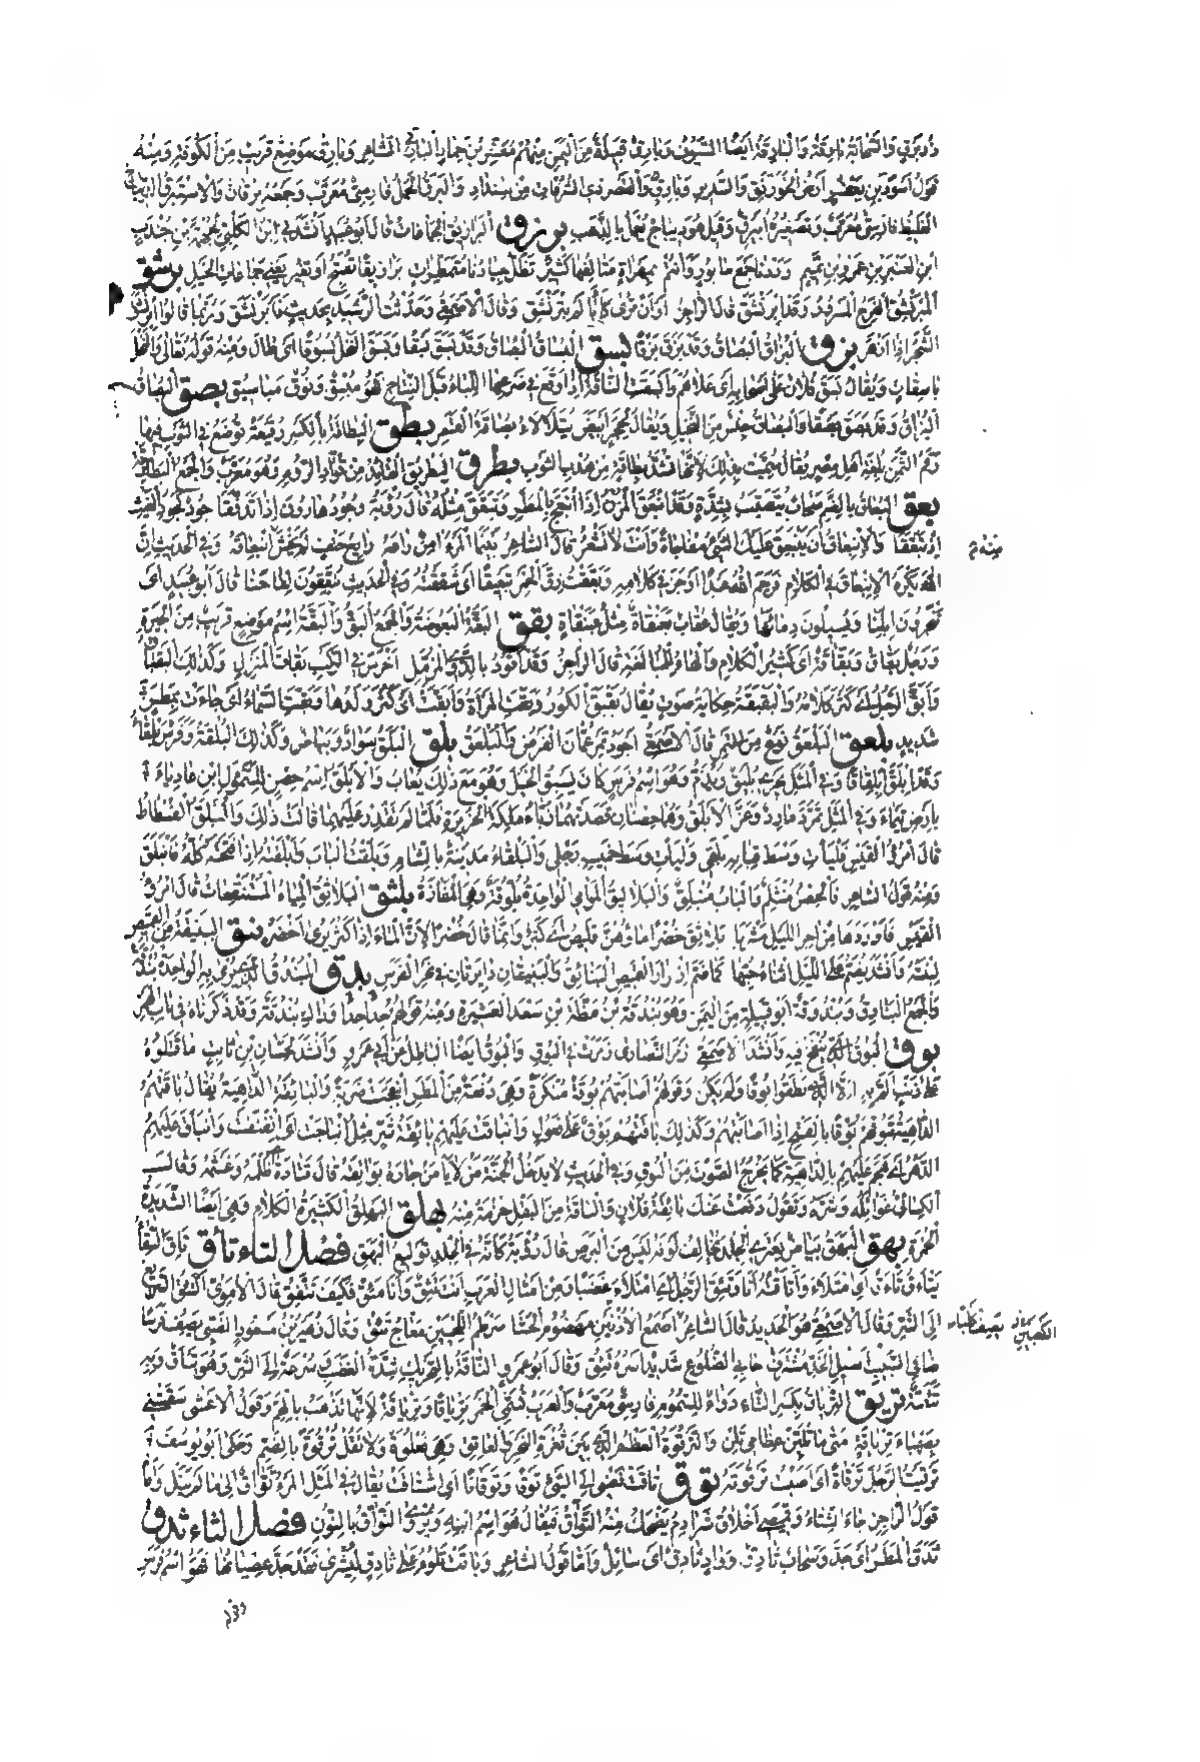 ذو برق والسحابة بارقة والبارقة أيضا السيوف وبارق قبيلة من اليمن منهم معقر بن حمار البارقي الشاعر وبارق موضع قريب من الكوفة ومنه
قول أسود بن يعفر أرض الخورنق والسدير وبارق والقصر ذي الشرفات من سنداد والبرق الحمل فارسي معرب وجمعه برقان والإستبرق الديباج
الغليظ فارسي معرب وتصغيره أبيرق وقيل هو ديباج يعمل بالذهب برزق البرازيق الجماعات قال أبو عبيد أنشدني ابن الكلبي لجهمة بن جندب
ابن العنبر بن عمرو بن تميم رددنا جمع سابور وأنتم بمهواة متالفها كثير تظل جيادنا متمطرات برازيقا تصبح أو تغير يعني جماعات الخيل برشق
المبرنشق الفرح المسرور وقد ابرنشق قال الراجز أو أن ترى كأباء لم تبرنشق وقال الأصمعي وحدثت الرشيد بحديث فابرنشق وربما قالوا ابرنشق
الشجر إذا أزهر بزق البزاق البصاق وقد بزق بزقا بسق البساق البصاق وقد بسق بسقا وبسق النخل بسوقا أي طال ومنه قوله تعالى والنخل
باسقات ويقال بسق فلان على أصحابه أي علاهم وأبسقت الناقة إذا وقع في ضرعها اللباء قبل النتاج فهو مبسق ونوق مباسيق بصق البصاق
البزاق وقد بصق بصقا والبصاق جنس من النخيل ويقال لحجر أبيض يتلألأ بصاقة القمر بطق البطاقة بالكسر رقيعة توضع في الثوب فيها
رقم الثمن بلغة أهل مصر يقال سميت بذلك لأنها تشد بطاقة من هدب الثوب بطرق البطريق القائد من قواد الروم وهو معرب والجمع البطارقة
بعق البعاق بالضم سحاب يتصبب بشدة وقد انبعق المزن إذا انبعج بالمطر وتبعق مثله قال رؤبة وجود هارون إذا تدفقا جود كجود الغيث
إذ تبعقا والانبعاق أن ينبعق عليك الشيء مفاجأة وأنت لا تشعر قال الشاعر بينما المرء آمن راعه رائع حتف لم يخش انبعاقه وفي الحديث إن
الله يكره الانبعاق في الكلام فرحم الله عبدا أوجز في كلامه وبعقت زق الخمر تبعيقا أي شققته وفي الحديث يبعقون لقاحنا قال أبو عبيد أي
ينحرون إبلنا ويسيلون دماءها ويقال عقاب بعنقاة مثل عبنقاة بقق البقة البعوضة والجمع البق والبقة اسم موضع قريب من الحيرة
ورجل بقاق وبقاقة أي كثير الكلام والهاء للمبالغة قال الراجز وقد أقود بالدوى المزمل أخرس في الركب بقاق المنزل وكذلك البقباق
وأبق الرجل أي كثر كلامه والبقبقة حكاية صوت يقال بقبق الكوز وبقت المرأة وأبقت أي كثر ولدها وبقت السماء أي جاءت بمطر
شديد بلعق البلعق نوع من التمر قال الأصمعي أجود تمر عمان الفرض والبلعق بلق البلق سواد وبياض وكذلك البلقة وفرس بلقاء
وقد ابلق ابلقاقا وفي المثل يجري بليق ويذم وهو اسم فرس كان يسبق الخيل وهو مع ذلك يعاب والأبلق اسم حصن للسموأل ابن عادياء
بأرض تيماء وفي المثل تمرد مارد وعز الأبلق وهما حصنان قصدتهما زباء ملكة الجزيرة فلما لم تقدر عليهما قالت ذلك والبلق الفسطاط
قال امرؤ القيس فليأت وسط قبابه بلقي وليأت وسط خميسه رجلي والبلقاء مدينة بالشام وبلقت الباب وأبلقته إذا فتحته كله فانبلق
ومنه قول الشاعر فالحصن منثلم والباب منبلق والبلاليق الموامي الواحدة بلوقة وهي المفازة بلثق البلاثق المياه المستنقعات قال امرؤ
القيس فأوردها من آخر الليل مشربا بلاثق خضرا ماؤهن قليص أي كثير وإنما قال خضرا لأن الماء إذا كثر يرى أخضر بنق البنيقة من القميص
لبنته وأنشد يضم إلي الليل أثناء حبها كما ضم أزرار القميص البنائق والبنيقتان دائرتان في نحر الفرس بندق البندق الذي يرمى به الواحدة بندقة
والجمع البنادق وبندقة أبو قبيلة من اليمن وهو بندقة بن مظة بن سعد العشيرة ومنه قولهم حدأ حدأ وراءك بندقة وقد ذكرناه في باب الهمز
بوق البوق الذي ينفخ فيه وأنشد الأصمعي زمر النصارى زمرت في البوق والبوق أيضا الباطل عن أبي عمرو وأنشد لحسان بن ثابت ما قتلوه
على ذنب ألم به إلا الذي نطقوا بوقا ولم يكن وقولهم أصابتهم بوقة منكرة وهي دفعة من المطر انبعجت ضربة والبائقة الداهية يقال باقتهم
الداهية تبوقهم بوقا بالفتح إذا أصابتهم وكذلك باقتهم بؤوق على فعول وانباقت عليهم بائقة شر مثل انباجت أي انفتقت وانباق عليهم
الدهر أي هجم عليهم بالداهية كما يخرج الصوت من البوق وفي الحديث لا يدخل الجنة من لا يأمن جاره بوائقه قال قتادة ظلمه وغشمه وقال
الكسائي غوائله وشره وتقول دفعت عنك بائقة فلان والباقة من البقل حزمة منه بهلق البهلق الكثيرة الكلام وهي أيضا الشديدة
الحمرة بهق البهق بياض يعتري الجلد يخالف لونه ليس من البرص قال رؤبة كأنه في الجلد توليع البهق فصل التاء تأق تئق السقاء
يتأق تأقا أي امتلأ وأتأقته أنا وتئق الرجل أي امتلأ غضبا ومن أمثال العرب أنت تئق وأنا مئق فكيف نتفق قال الأموي التئق السريع
إلى الشر وقال الأصمعي هو الحديد قال الشاعر أصمع الأذنين مهضوم الحشا سرطم اللحيين معاج تئق وقال زهير بن مسعود الضبي يصف فرسا
ضافي السبيب أسيل الخد مشترف حابي الضلوع شديد أسره تئق وقال أبو عمرو التأقة بالتحريك شدة الغضب والسرعة إلى الشر وهو يتأق وبه
تأقة ترق الترياق بكسر التاء دواء للسموم فارسي معرب والعرب تسمي الخمر ترياقا وترياقة لأنها تذهب بالهم وقول الأعشى سقتني
بصهباء ترياقة متى ما تلين عظامي تلن والترقوة العظم الذي بين ثغرة النحر والعاتق وهي فعلوة ولا تقل ترقوة بالضم وحكى أبو يوسف
ترقيت الرجل ترقاة أي أصبت ترقوته توق تاقت نفسي إلى الشيء توقا وتوقانا أي اشتاقت يقال في المثل المرء تواق إلى ما لم ينل وأما
قول الراجز جاء الشتاء وقميصي أخلاق شراذم يضحك منه التواق فيقال هو اسم ابنه ويروى النواق بالنون فصل الثاء ثدق
ثدق المطر أي جد وسحاب ثادق وواد ثادق أي سائل وأما قول الشاعر وباتت تلوم على ثادق ليشرى فقد جد عصيانها فهو اسم فرس
منه